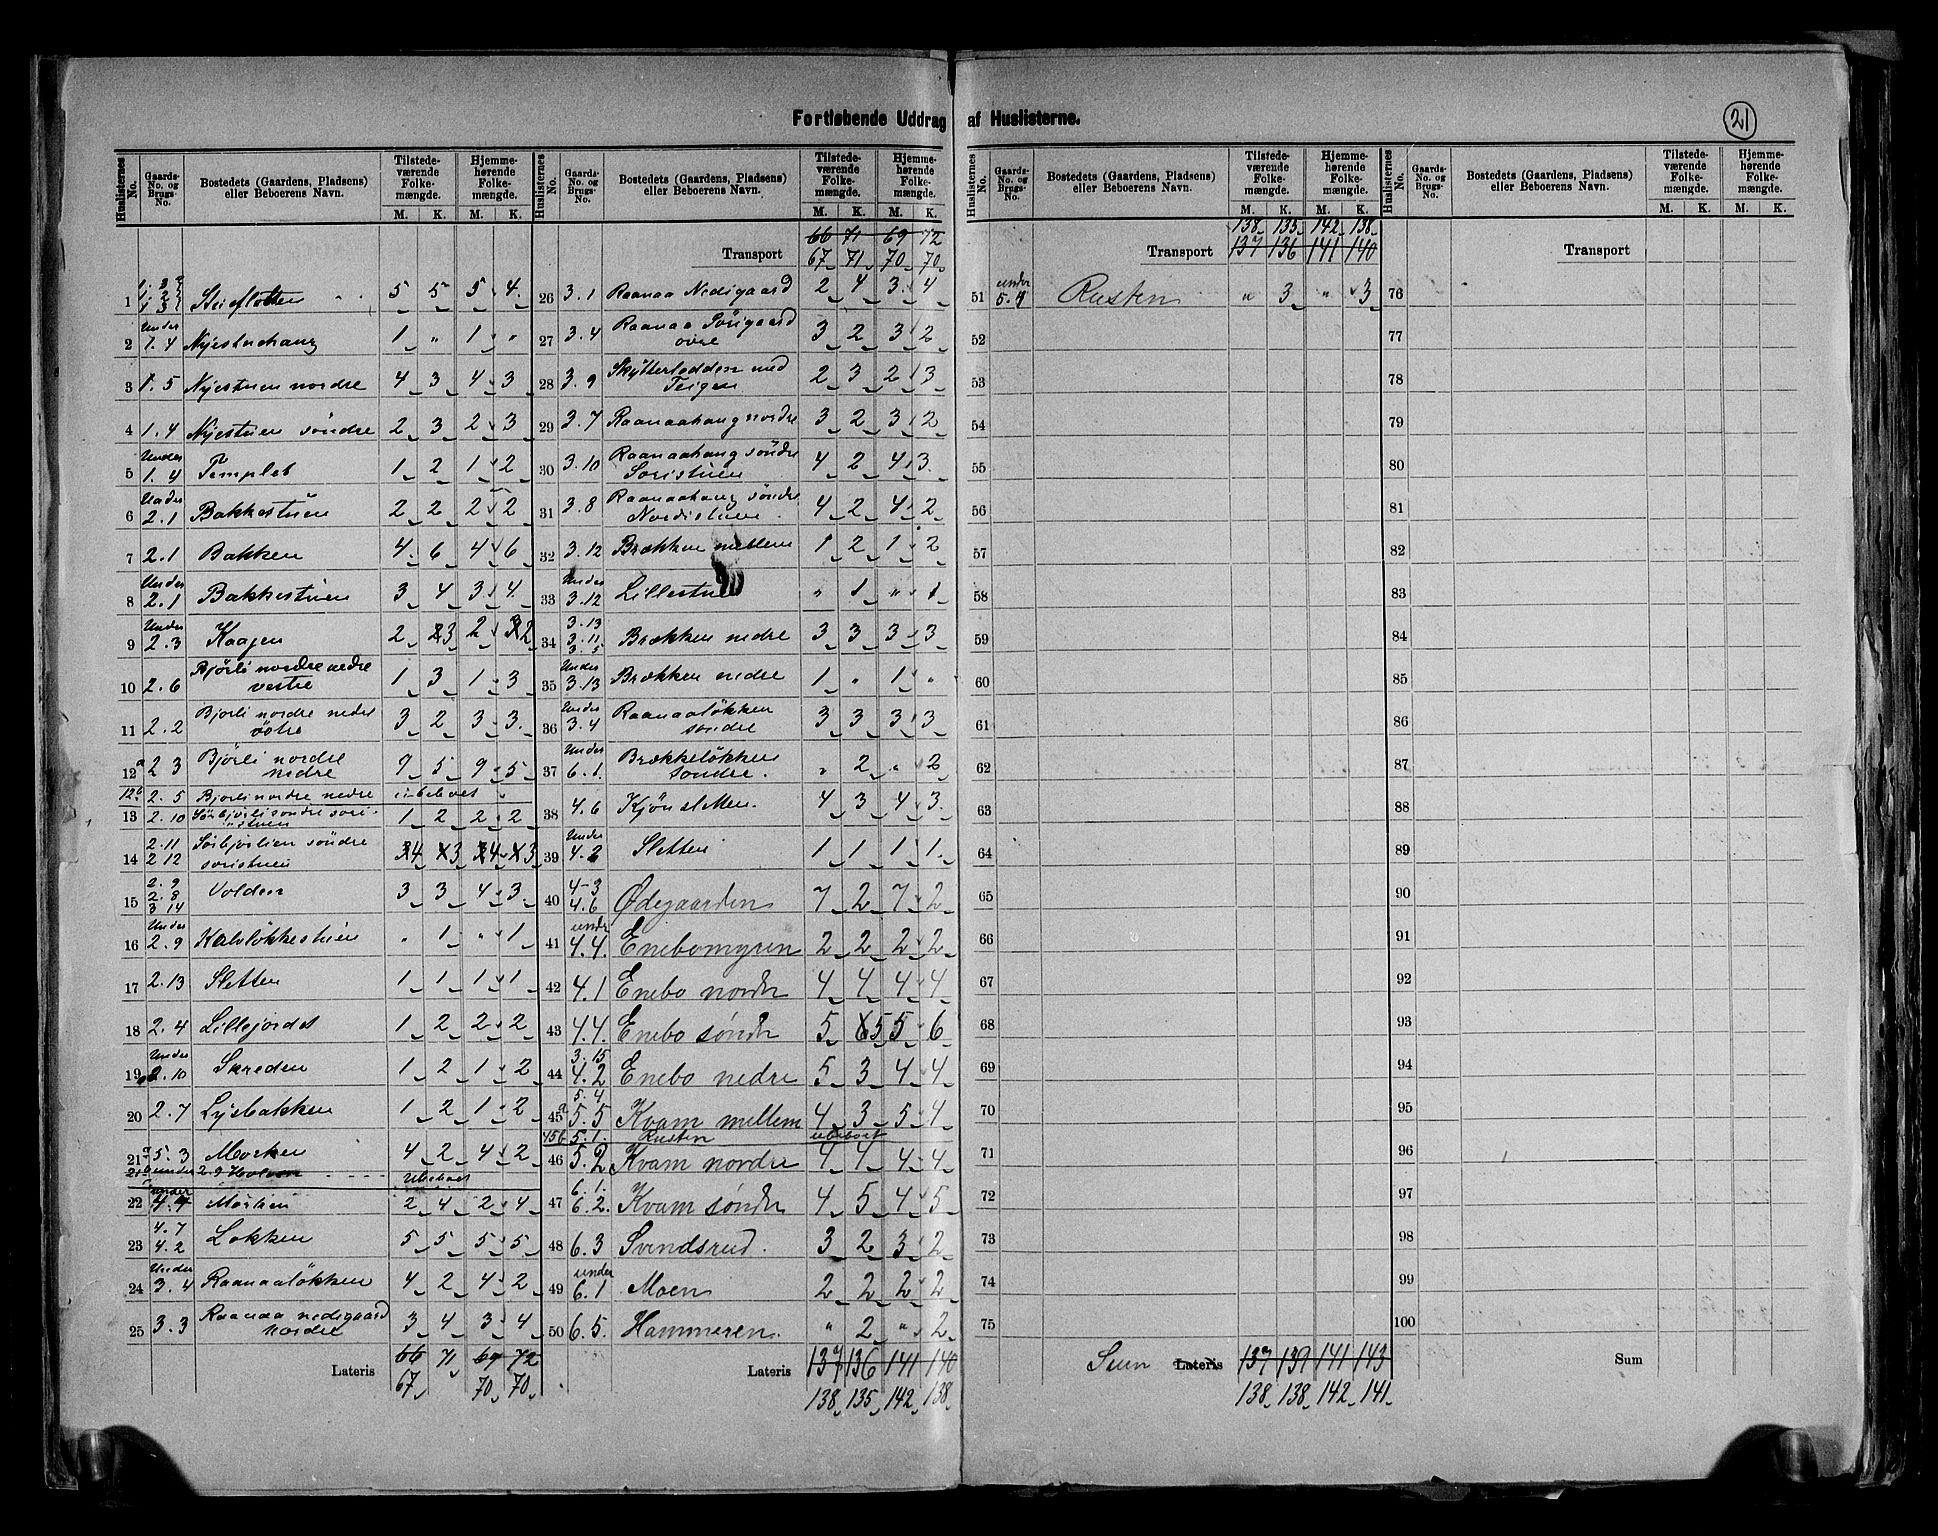 Fortløbende Uddrag af Huslisterne.
21
Huslisternes No. | Gaards-No. og Brugs-No. | Bostedets (Gaardens, Pladsens) eller Beboerens Navn. | Tilstedeværende Folkemængde. M. K. | Hjemmehørende Folkemængde. M. K.
1 | Stueflotten | 5 5 5 4
2 | Under 1.4 | Nyestuehaug | 1 " 1 "
3 | 1.5 | Nyestuen nordre | 4 3 4 3
4 | 1.4 | Nyestuen söndre | 2 3 2 3
5 | Under 1.4 | Templet | 1 2 1 2
6 | Under 2.1 | Bakkestuen | 2 2 2 2
7 | 2.1 | Bakken | 4 6 4 6
8 | Under 2.1 | Bakkestuen | 3 4 3 4
9 | Under 2.3 | Haagen | 2 3 2 2
10 | 2.6 | Bjørli nordre nedre vestre | 1 3 1 3
11 | 2.2 | Bjorli nordre nedre östre | 3 2 3 3
12a | 2 3 | Björli nordre nedre | 9 5 9 5
12b | 2.5 | Bjorli nordre nedre | ubeboet
13 | 2.10 | Sörbjorli söndre soristuen | 1 2 2 2
14 | 2.11 2.12 | Sörbjorlien söndre soristuen | 4 3 4 3
15 | 2.9 2.8 3.14 | Volden | 3 3 4 3
16 | Under 2.9 | Kalvløkkestuen | " 1 " 1
17 | 2.13 | Sletten | 1 1 1 1
18 | 2.4 | Lillejordet | 1 2 2 2
19 | Under 2.10 | Skreden | 1 2 1 2
20 | 2.7 | Lysbakken | 1 2 1 2
21a | 5.3 | Morken | 4 2 4 2
21b | under 2.9 | Holmen | Ubeboet
22 | under 4.4 | Moslien | 2 4 2 4
23 | 4.7 4.2 | Lokken | 5 5 5 5
24 | Under 3.4 | Raanaaløkken | 4 2 4 2
25 | 3.3 | Raanaa nedigaard nordre | 3 4 3 4
Lateris 66 71 69 72
67 70 70
Huslisternes No. | Gaards-No. og Brugs-No. | Bostedets (Gaardens, Pladsens) eller Beboerens Navn. | Tilstedeværende Folkemængde. M. K. | Hjemmehørende Folkemængde. M. K.
66 71 69 72
Transport 67 71 70 70
26 | 3.1 | Raanaa Nedigaard | 2 4 3 4
27 | 3.4 | Raanaa Sörigaard ovre | 3 2 3 2
28 | 3.9 | Skÿtterlodden med Teigen | 2 3 2 3
29 | 3.7 | Raanaahaug nordre | 3 2 3 2
30 | 3.10 | Raanaahaug söndre Soristuen | 4 2 4 3
31 | 3.8 | Raanaahaug söndre Nordistuen | 4 2 4 2
32 | 3.12 | Brækken mellem | 1 2 1 2
33 | Under 3.12 | Lillestuen | " 1 " 1
34 | 3.13 3.11 3.5 | Brækken nedre | 3 3 3 3
35 | Under 3.13 | Brækken nedre | 1 " 1 "
36 | Under 3.4 | Raanaaløkken søndre | 3 3 3 3
37 | Under 6.1. | Brækkeløkken söndre. | " 2 " 2
38 | 4.6 | Kjönsletten. | 4 3 4 3
39 | Under 4.2 | Sletten | 1 1 1 1
40 | 4-3 4.6 | Ødegaarden | 7 2 7 2
41 | under 4.4. | Enebomyren | 2 2 2 2
42 | 4.1 | Enebo nordre | 4 4 4 4
43 | 4.4. | Enebo søndre | 5 5 5 6
44 | 3.15 4.2 | Enebo nedre | 5 3 4 4
45a | 5.4 5.5 | Kvam mellem | 4 3 5 4
45b | 5.1. | Rusten | ubeboet
46 | 5.2 | Kvam nordre | 4 4 4 4
47 | 6.1. 6.2. | Kvam søndre | 4 5 4 5
48 | 6.3 | Svendsrud. | 3 2 3 2
49 | under 6.1 | Moen | 2 2 2 2
50 | 6.5. | Hammeren. | " 2 " 2
Lateris 137 136 141 140
138 135 142 138
Huslisternes No. | Gaards-No. og Brugs-No. | Bostedets (Gaardens, Pladsens) eller Beboerens Navn. | Tilstedeværende Folkemængde. M. K. | Hjemmehørende Folkemængde. M. K.
138 135 142 138
Transport 137 136 141 140
51 | under 5.4 | Rusten | " 3 " 3
52
53
54
55
56
57
58
59
60
61
62
63
64
65
66
67
68
69
70
71
72
73
74
75
Sum Lateris 137 139 141 143
138 138 142 141
Huslisternes No. | Gaards-No. og Brugs-No. | Bostedets (Gaardens, Pladsens) eller Beboerens Navn. | Tilstedeværende Folkemængde. M. K. | Hjemmehørende Folkemængde. M. K.
Transport
76
77
78
79
80
81
82
83
84
85
86
87
88
89
90
91
92
93
94
95
96
97
98
99
100
Sum